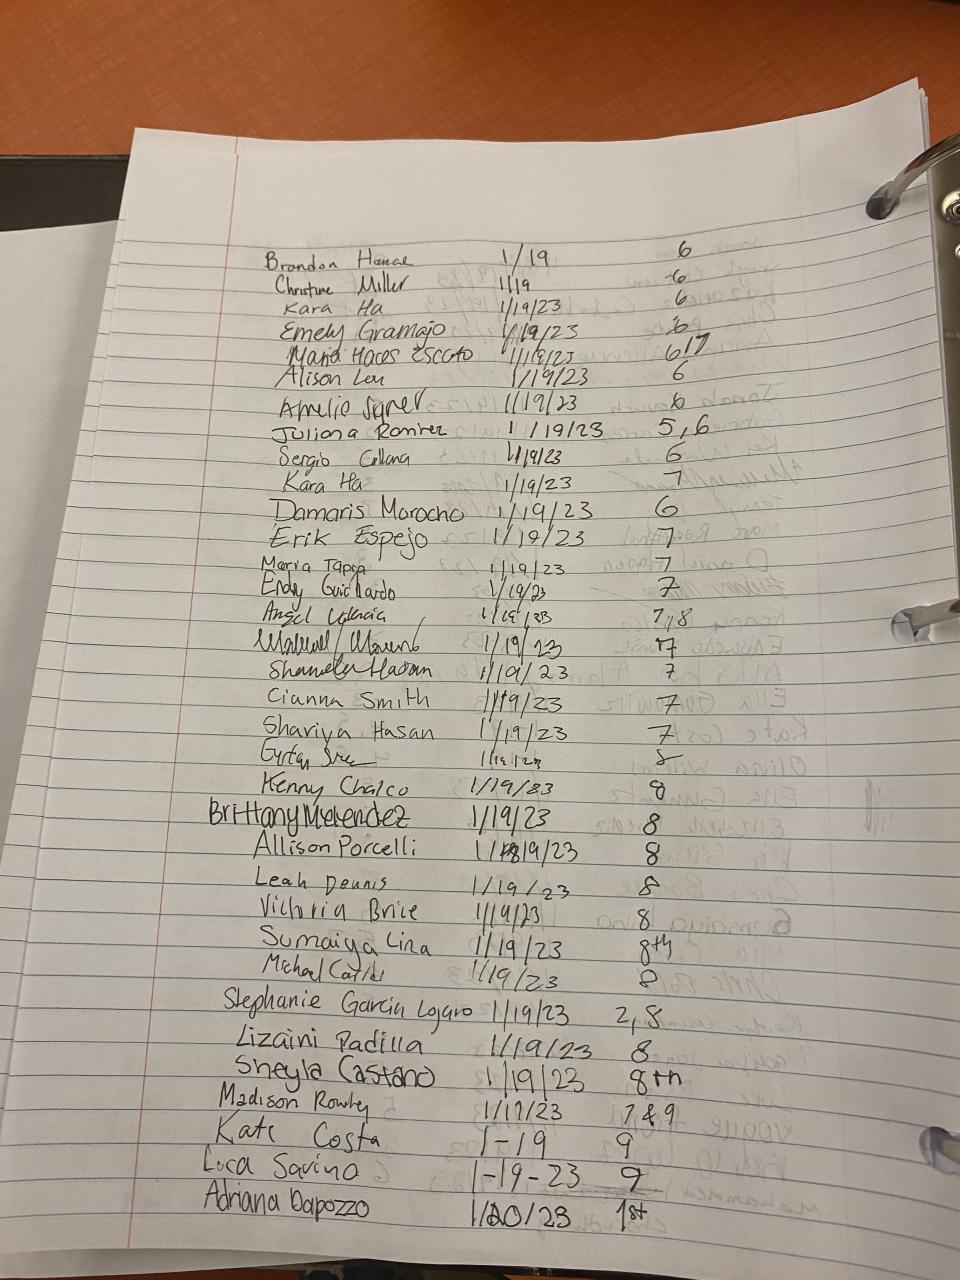 Brandon Hanae 1/19 6
Christine Miller 1/19 6
Kara Ha 1/19/23 6
Emely Gramajo 1/19/23 6
Maria Hoces Escoto 1/19/23 6/7
Alison Leu 1/19/23 6
Amelie 1/19/23 6
Juliana Ramirez 1/19/23 5,6
Sergio Collana 1/19/23 6
Kara Ha 1/19/23 7
Damaris Morocho 1/19/23 6
Erik Espejo 1/19/23 7
Maria Tapia 1/19/23 7
Endy Guichardo 1/19/23 7
Angel Valencia 1/19/23 7,8
1/19/23 7
Hasan 1/19/23 7
Cianna Smith 1/19/23 7
Shariya Hasan 1/19/23 7
8
Kenny Chalco 1/19/23 8
Brittany Melendez 1/19/23 8
Allison Porcelli 1/19/23 8
Leah Dennis 1/19/23 8
Victoria Brice 1/19/23 8
Sumaiya Lina 1/19/23 8th
Michael 1/19/23 8
Stephanie Garcia Lojano 1/19/23 2,8
Lizaini Padilla 1/19/23 8
Sheyla Castano 1/19/23 8th
Madison Rowley 1/19/23 7 & 9
Kate Costa 1-19 9
Luca Savino 1-19-23 9
Adriana Dapozzo 1/20/23 1st